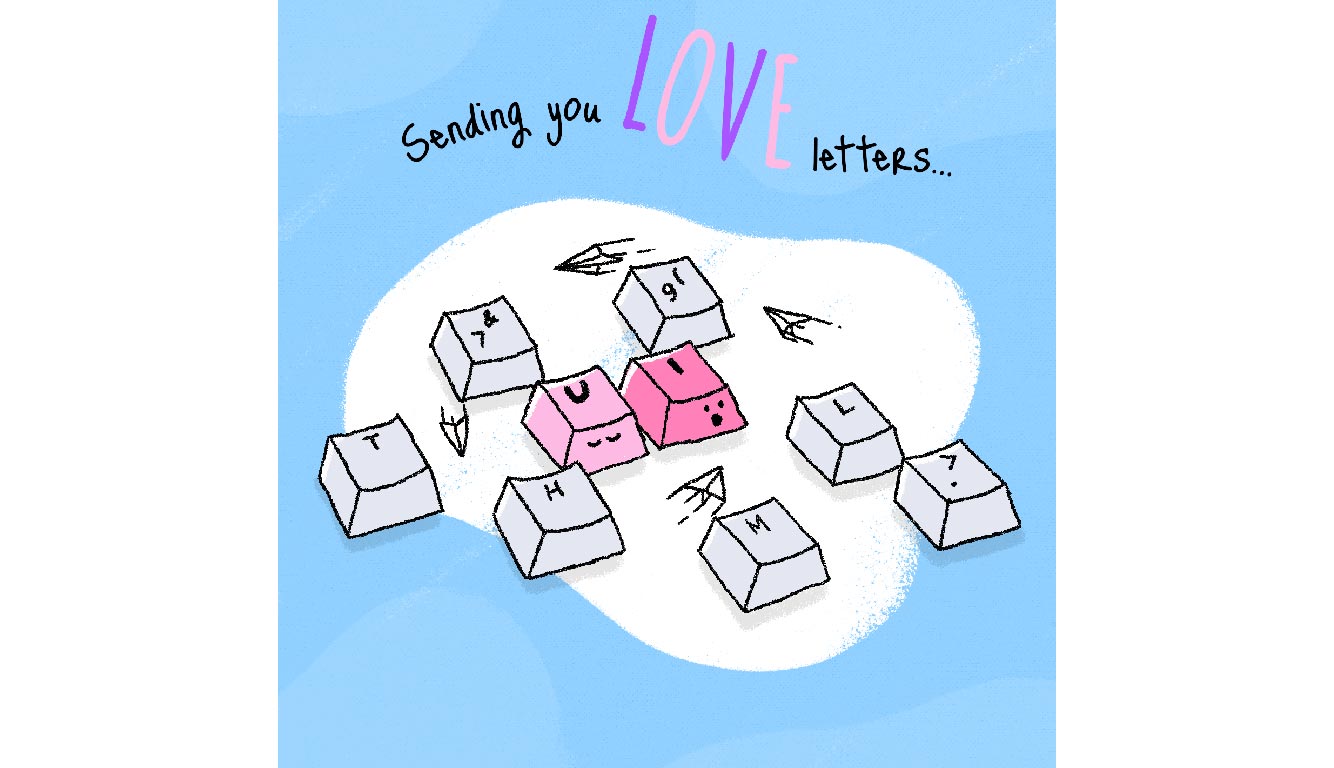 Sending you LOVE letters...
9 (
7 &
U
I
T
L
H
> .
M